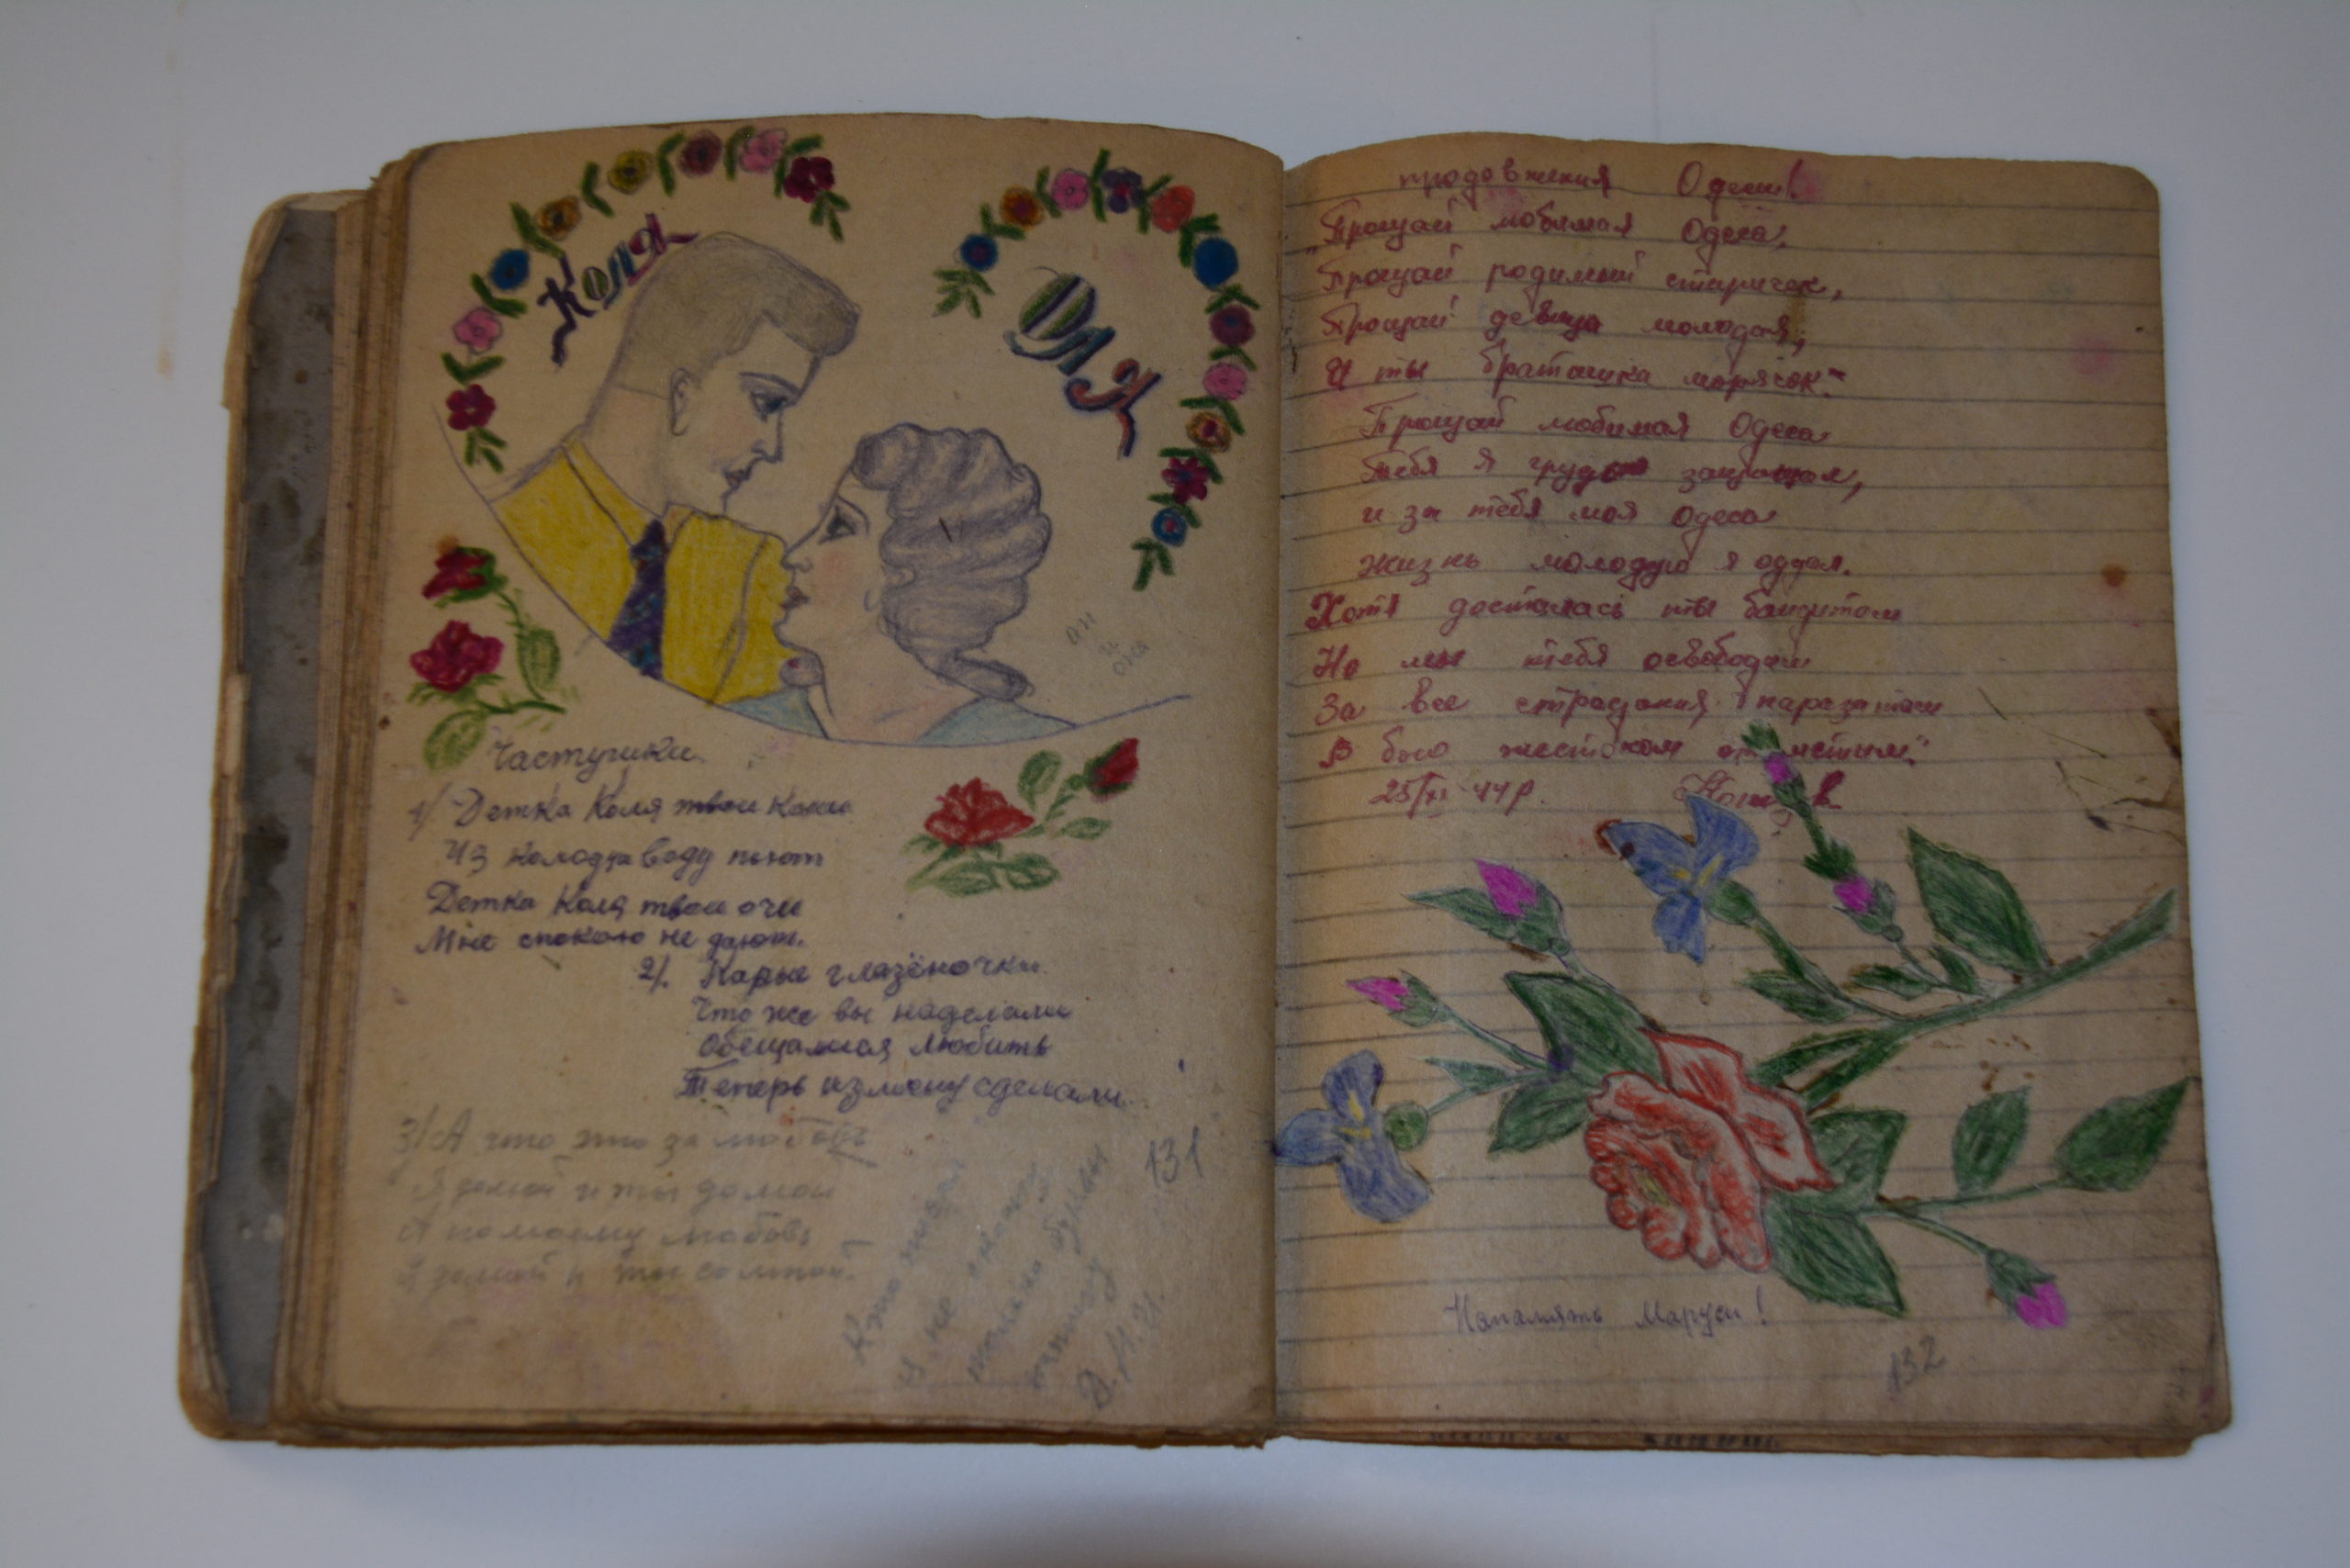 Коля
Оля
он
и
она
Частушки
1/ Детка Коля твои кони
Из колодца воду пьют
Детка Коля твои очи
Мне спокою не дают.
2/. Карые глазёночки
Что же вы наделали
Обещалися любить
Теперь измену сделали.
3/ А что это за любовь
Я домой и ты домой
А по моему любовь
Я домой и ты со мной.
и не
только буквы
Д. М. И.
131
продовженія Одеси!
"Прощай любимая Одеса,
Прощай родимый старичек,
Прощай девица молодая,
И ты братишка морячок."
Прощай любимая Одеса
Тебя я грудью защищал,
и за тебя моя Одеса
жизнь молодую я оддал.
Хотя досталась ты бандитам
Но мы тебя освободим
За все страдания паразитам
В бою жестоком отомстим."
44 р.
Напамять Маруси!
132